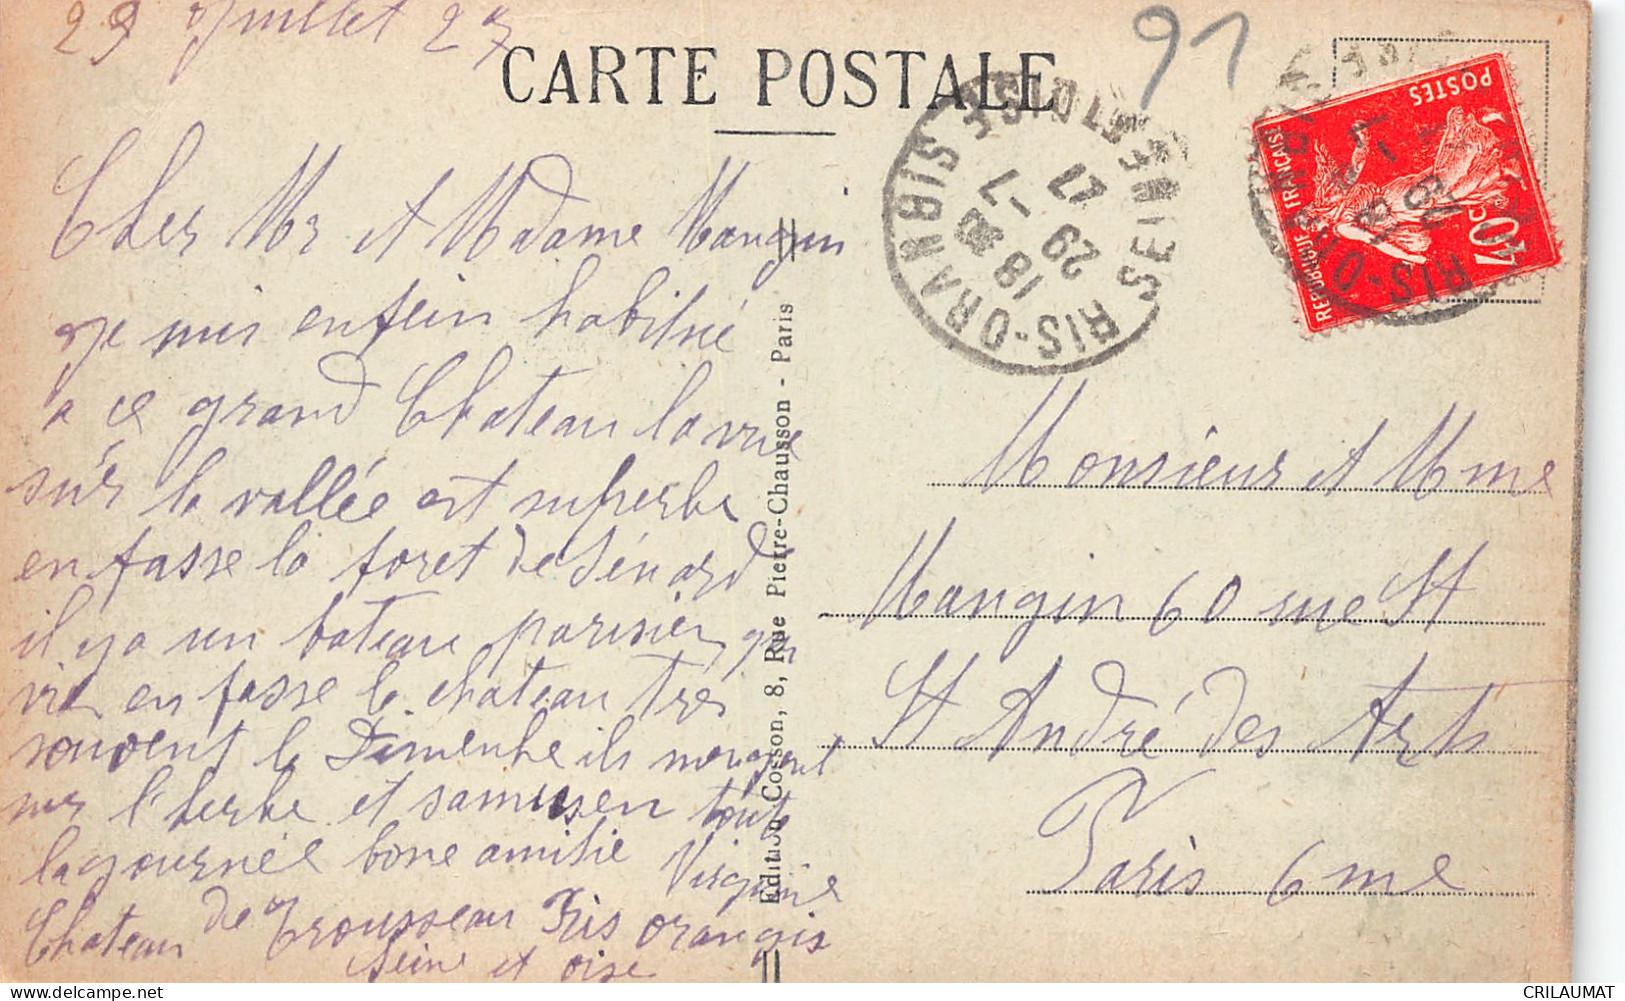 29 Juillet 27
CARTE POSTALE
91
Cher Mr et Madame Mangin
Je mis enfein habitué
a ce grand Chateau la vue
sur la vallée est superbe
en fasse la foret de Sénard
il ya un bateau parisien qui
vien en fasse le chateau tres
souvent le Dimenche ils mangent
sur l'herbe et samusen toute
la journée bone amitie Virginie
Chateau de Trousseau Ris orangis
Seine et oise
Edition Cosson, 8, Rue Pierre-Chausson - Paris
RIS-ORANGIS SEINE ET OISE
18
29 -7
27
REPUBLIQUE FRANÇAISE
POSTES
40c
RIS-ORANGIS
Monsieur et Mme
Mangin 60 rue St
St André des Arts
Paris 6me
CRILAUMAT